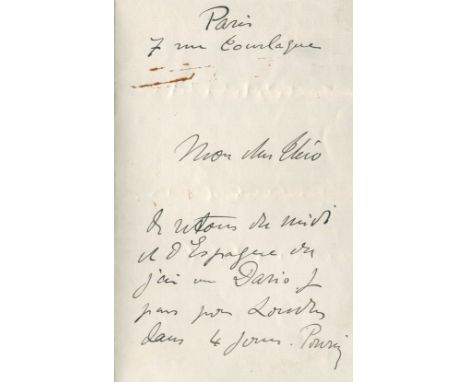 Paris
7 rue Tourlaque
Mon cher Théo
de retour du midi
et d'Espagne où
j'ai vu Dario je
pars pour Londres
dans 4 jours. Pourrai